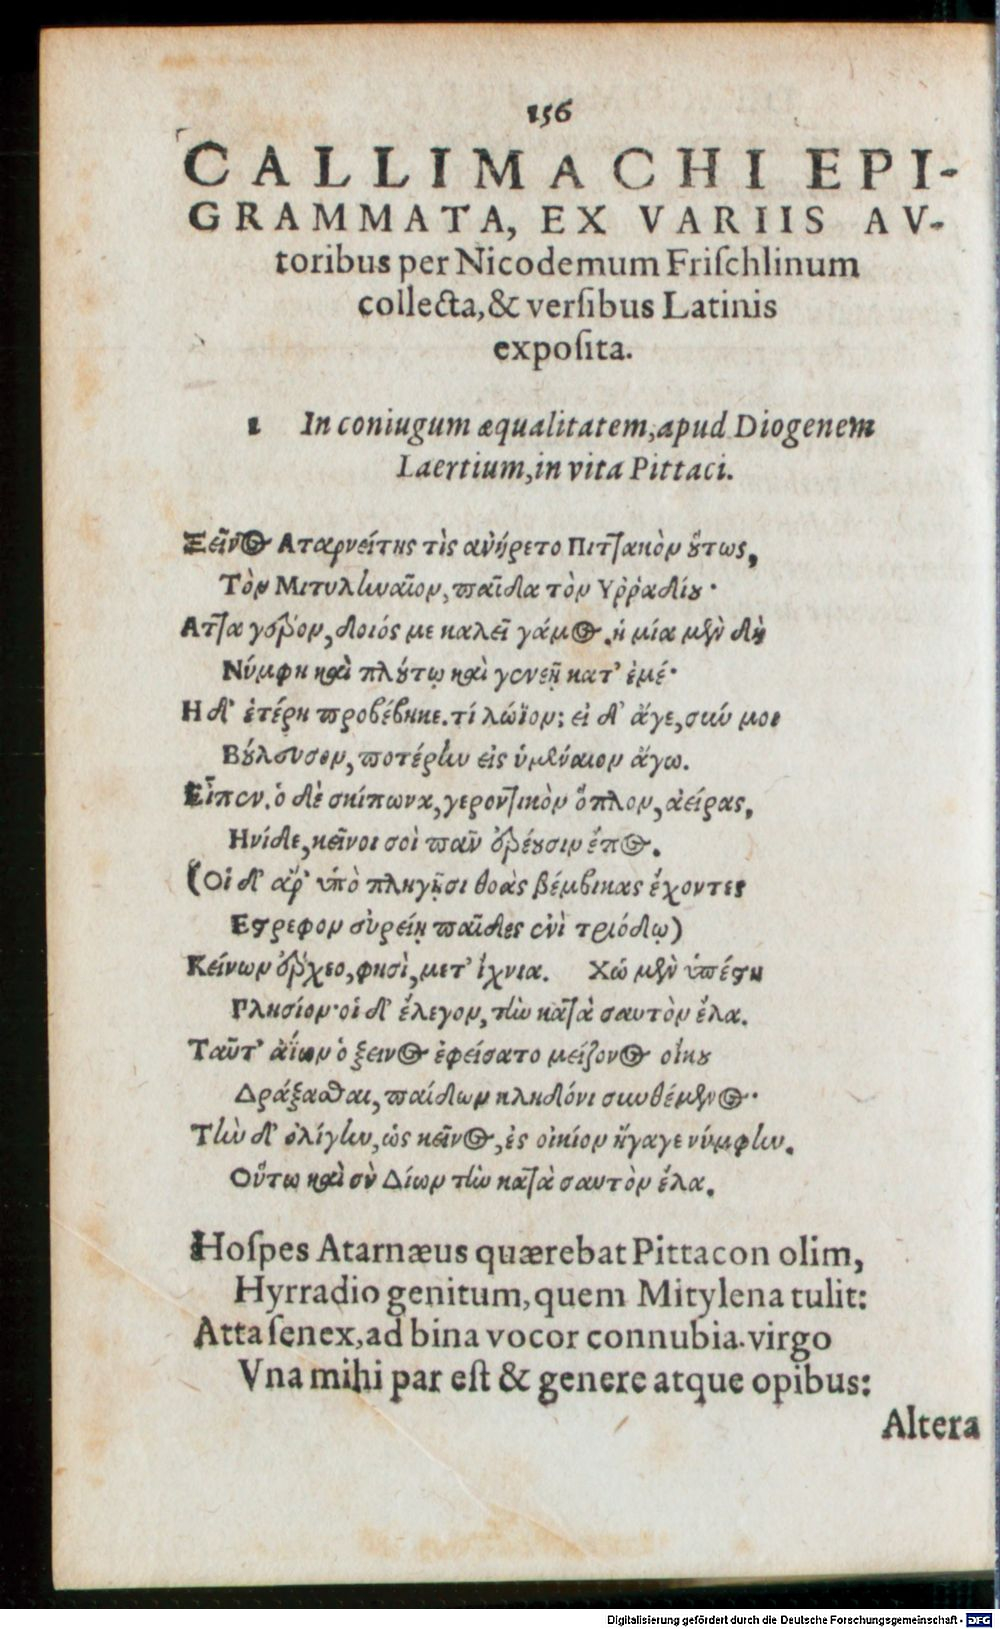 156
CALLIMACHI EPI-
GRAMMATA, EX VARIIS AV-
toribus per Nicodemum Friſchlinum
collecta, & verſibus Latinis
expoſita.
1 In coniugum æqualitatem, apud Diogenem
Laertium, in vita Pittaci.
Ξεῖνος Αταρνείτης τὶς ἀνήρετο Πιττακὸν ȣ̔́τως,
Τὸν Μιτυληναῖον, παῖδα τὸν Υῤῥαδίȣ·
Αττα γέρον, δοιός με καλεῖ γάμος. ἡ μία μὲν δὴ
Νύμφη καὶ πλȣ́τῳ καὶ γενεῇ κατ' ἐμέ·
Η δ' ἑτέρη προβέβηκε. τί λώϊον; εἰ δ' ἄγε, σύν μοι
Βȣ́λευσον, ποτέρην εἰς ὑμέναιον ἄγω.
Εἶπεν. ὁ δὲ σκίπωνα, γεροντικὸν ὅπλον, ἀείρας,
Ηνίδε, κεῖνοι σοὶ πᾶν ἐρέȣσιν ἔπος.
(Οἱ δ' ἄρ' ὑπὸ πληγῇσι θοὰς βέμβικας ἔχοντες
Εϛρεφον εὐρείῃ παῖδες ἐνὶ τριόδῳ)
Κείνων ἔρχεο, φησὶ, μετ' ἴχνια. Χὠ μὲν ὑπέϛη
Πλησίον· οἱ δ' ἔλεγον, τὴν κατὰ σαυτὸν ἔλα.
Ταῦτ' ἀΐων ὁ ξεινος ἐφείσατο μείζονος οἴκȣ
Δράξασθαι, παίδων κληδόνι συνθέμενος·
Τὴν δ' ὀλίγην, ὡς κεῖνος, ἐς οἰκίον ἤγαγε νύμφην.
Οὕτω καὶ σὺ Δίων τὴν κατὰ σαυτὸν ἔλα.
Hoſpes Atarnæus quærebat Pittacon olim,
Hyrradio genitum, quem Mitylena tulit:
Atta ſenex, ad bina vocor connubia. virgo
Vna mihi par eſt & genere atque opibus:
Altera
Digitalisierung gefördert durch die Deutsche Forschungsgemeinschaft - DFG